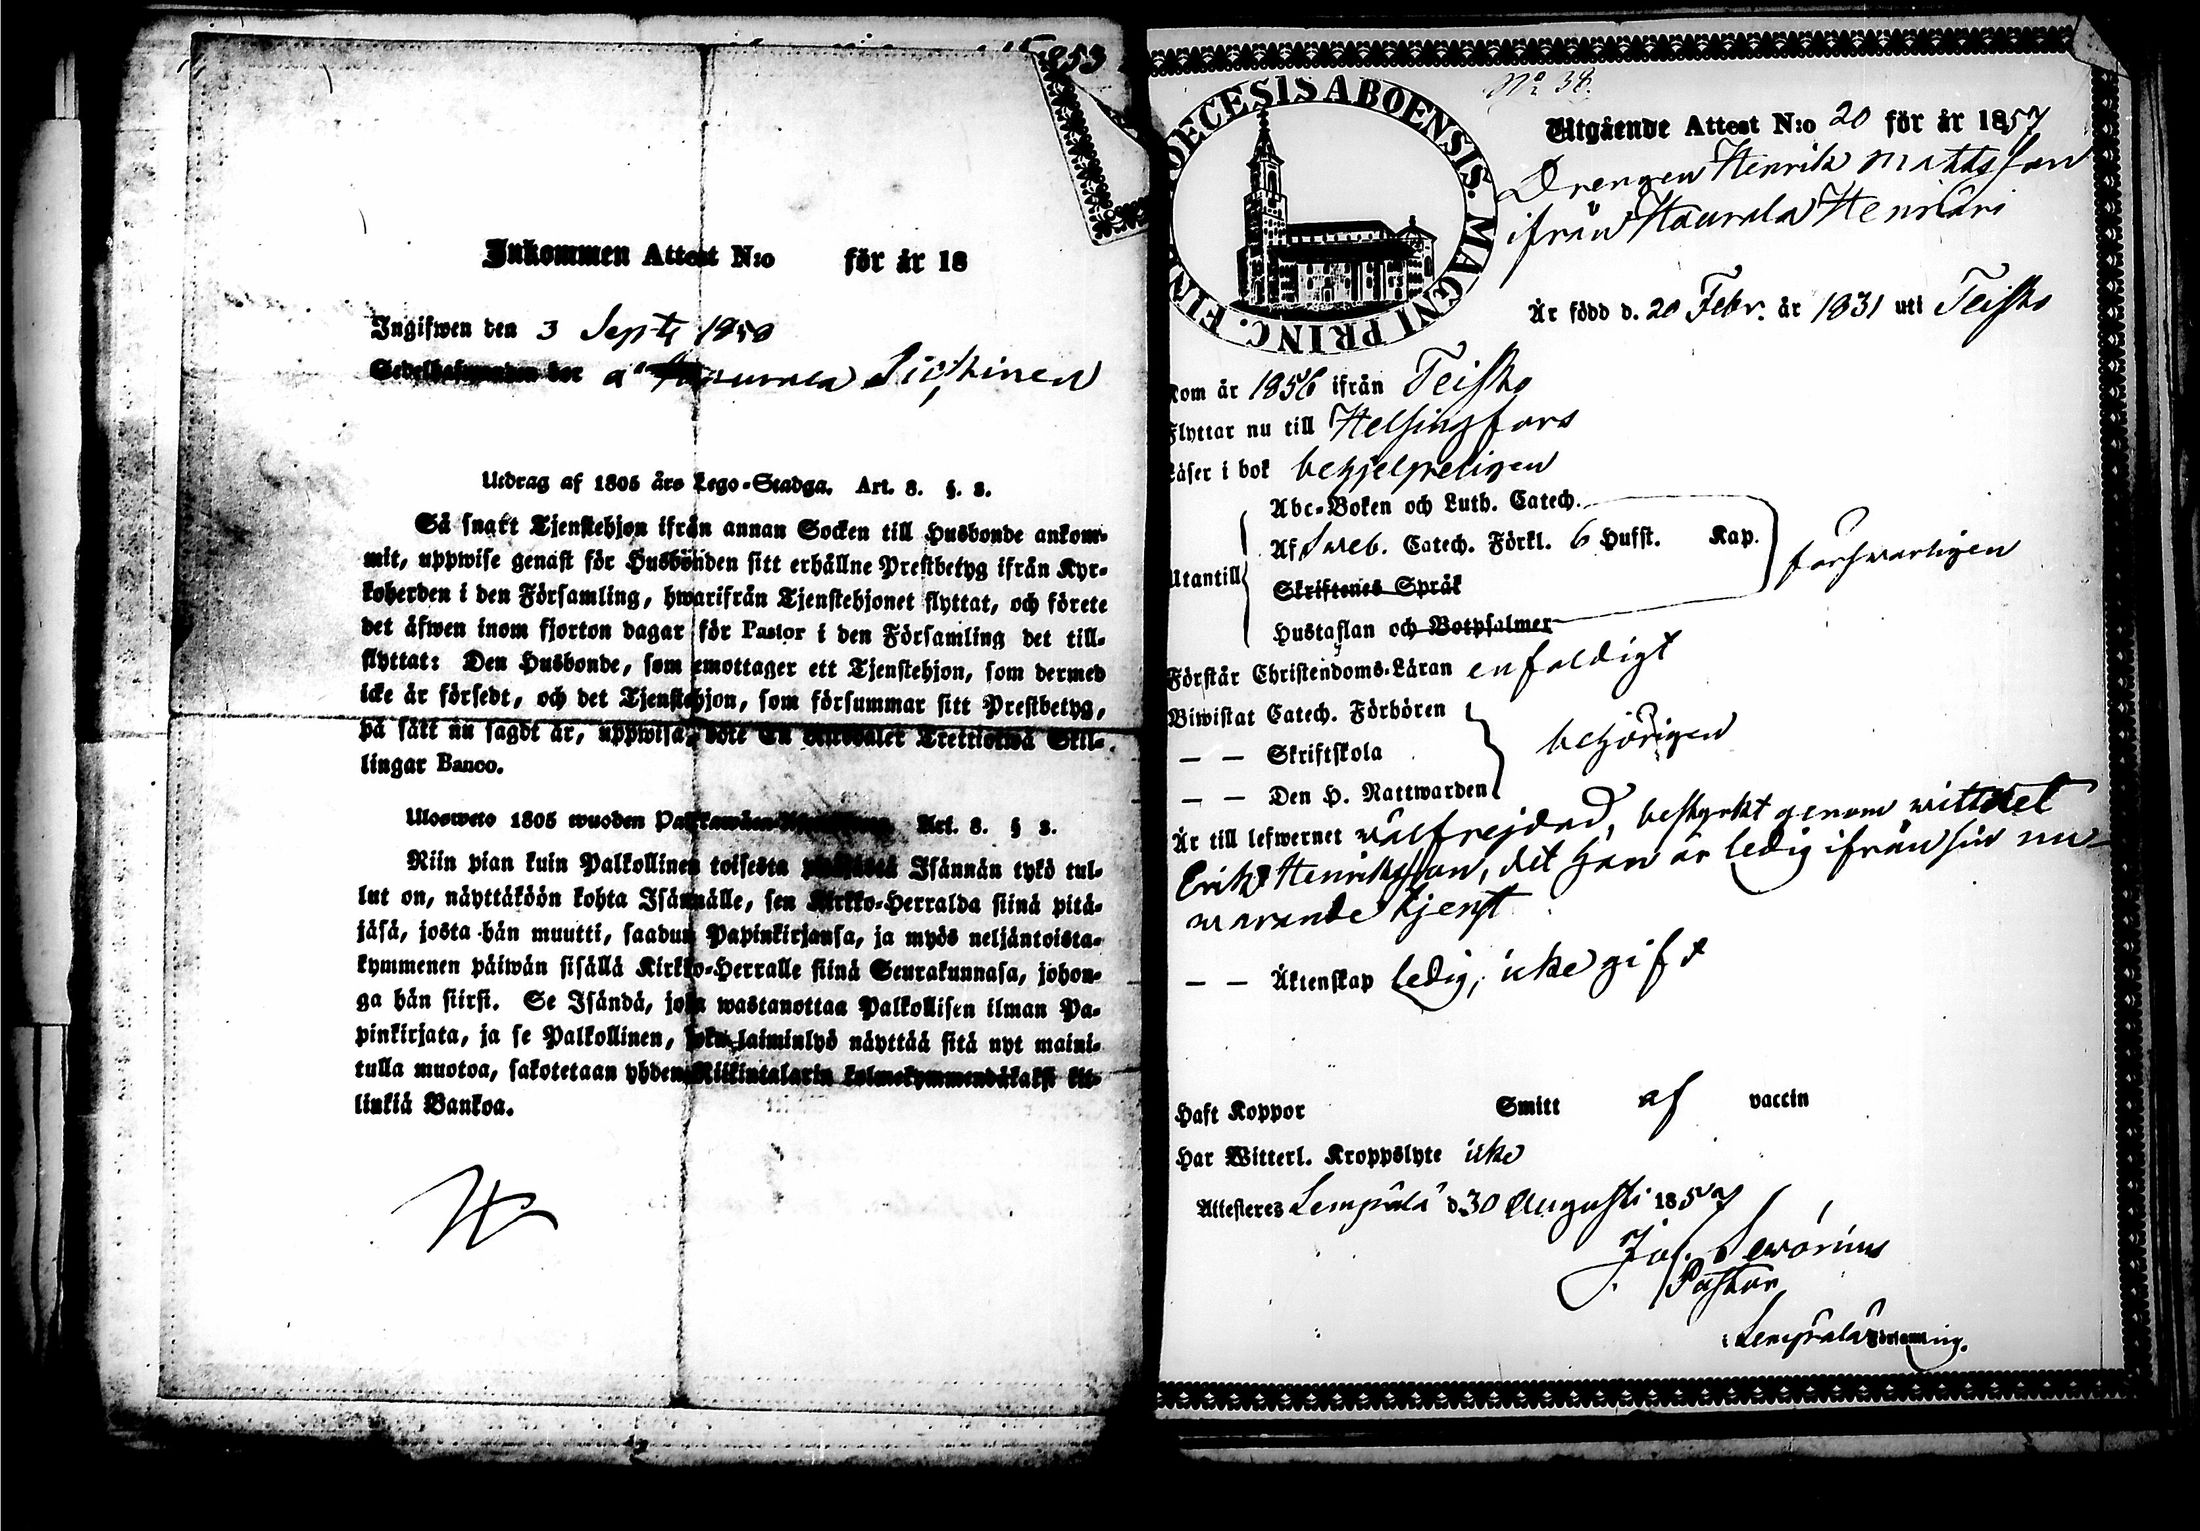 853
Inkommen Attest N:o för år 18
Ingifwen den 3 Sept
Utdrag af 1805 års Lego-Stadga. Art. 8. §.
Så snart Tjenstehjon ifrån annan Socken till Husbonde ankom-
mit, uppwise genast för Husbonden sitt erhållne Prestbetyg ifrån Kyr-
koherden i den Församling, hwarifrån Tjenstehjonet flyttat, och förete
det äfwen inom fjorton dagar för Pastor i den Församling det till-
flyttat: Den Husbonde, som emottager ett Tjenstehjon, som dermed
icke är försedt, och det Tjenstehjon, som försummar sitt Prestbetyg,
på sätt nu sagdt är, uppwisa, böte En Riksdaler Trettiotwå Skil-
lingar Banco.
Ulosweto 1805 wuoden Art. 8. §
Niin pian kuin Palkollinen toisesta Isännän tykö tul-
lut on, näyttäköön kohta Isännälle, sen Kirkko-Herralda siinä pitä-
jäsä, josta hän muutti, saadun Papinkirjansa, ja myös neljäntoista-
kymmenen päiwän sisällä Kirkko-Herralle siinä Seurakunnasa, johon-
ga hän siirsi. Se Isändä, joka wastanottaa Palkollisen ilman Pa-
pinkirjata, ja se Palkollinen, joka laiminlyö näyttää sitä nyt maini-
tulla muotoa, sakotetaan yhden Riikintalarin kolmekymmendäkaksi kil-
linkiä Bankoa.
DIOECESIS ABOENSIS. MAGNI PRINC. FINL
No 38.
Utgående Attest N:o 20 för år 1857
Drengen Henrik Mattsson
ifrån Haurala Henrikäri
Är född d. 20 Febr. år 1831 uti Teisko
Kom år 1856 ifrån Teisko
Flyttar nu till Helsingfors
Läser i bok behjelpeligen
Abc-Boken och Luth. Catech.
Af Sweb. Catech. Förkl. 6 Hufst. Kap.
Utantill försvarligen
Skriftenes Språk
Hustaflan och Botpsalmer
Förstår Christendoms-Läran enfaldigt
Biwistat Catech. Förhören
— — Skriftskola behörigen
— — Den H. Nattwarden
Är till lefwernet wälfrejdad, bestyrkt genom wittnet
Erik Henriksson, det han är ledig ifrån sin nu-
warande tjenst
— — Äktenskap ledig, icke gift
Haft Koppor Smitt af vaccin
Har Witterl. Kroppslyte icke
Attesteres Lempälä d. 30 Augusti 1857
Pastor
i Lempälä Församling.